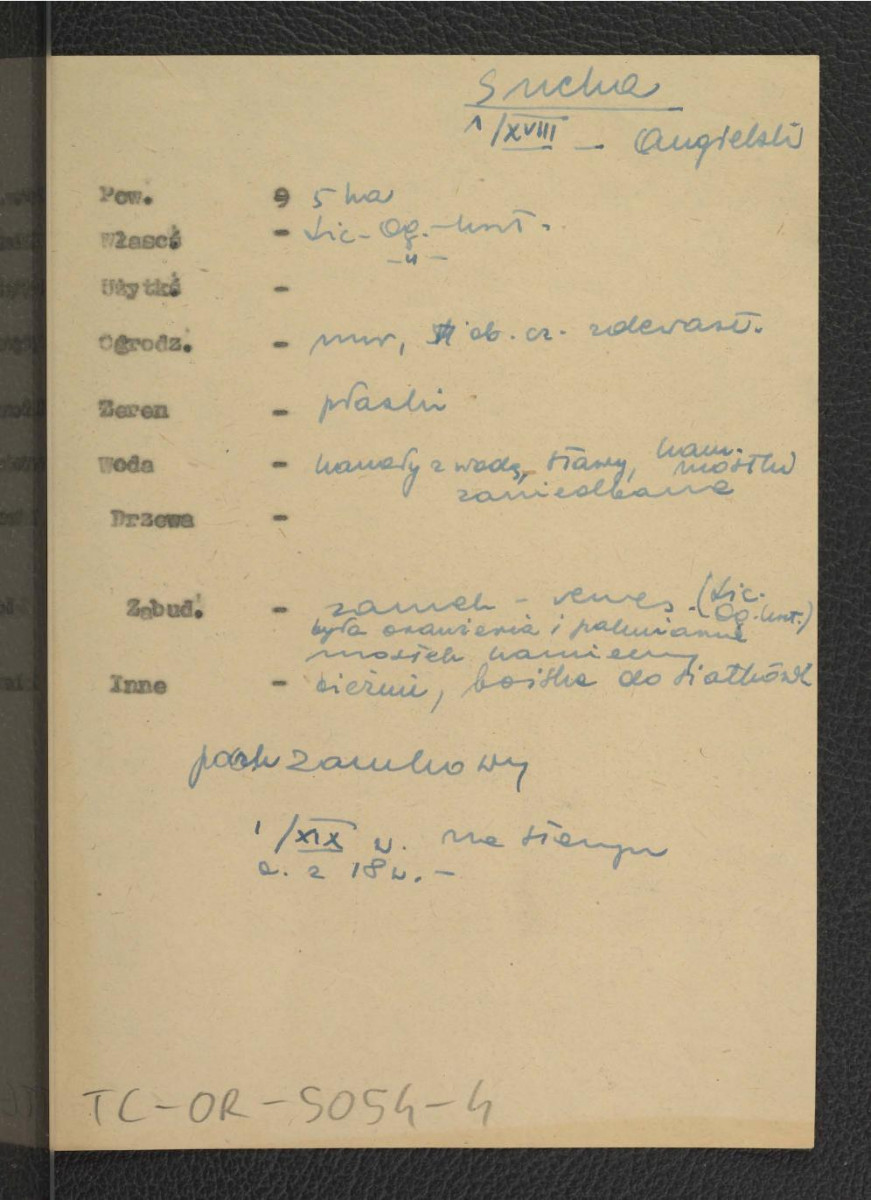 Sucha
1/XVIII — Angielski
Pow. 9 5 ha
Włascś - Lic. Og.-hszt.
-"-
Użytkś -
Ogrodz. - mur, ob. cz. zdewast.
Zeren - płaski
Woda - kanały z wodą, stawy, kam. mostki
zaniedbane
Drzewa -
Zabud. - zamek - renes. (Lic.
Og.-kszt.)
była oranżeria i palmiarnia
mostek kamienny
Inne - bieżnie, boiska do siatkówk
park zamkowy
1/XIX w. na starym
z 18 w. -
TC-OR-5054-4